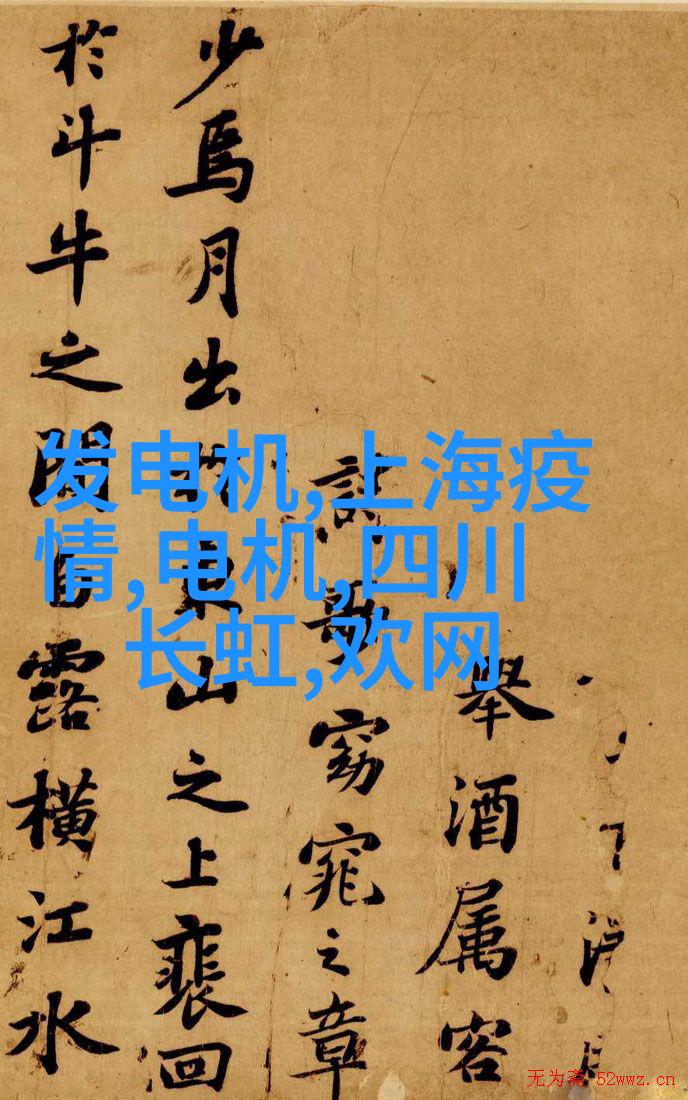 舉酒属客
詩歌窈窕之章
少焉月出於東山之上裵回
於斗牛之間白露橫江水
发电机,上海疫
情,电机,四川
长虹,欢网
无为斋 52wwz.cn